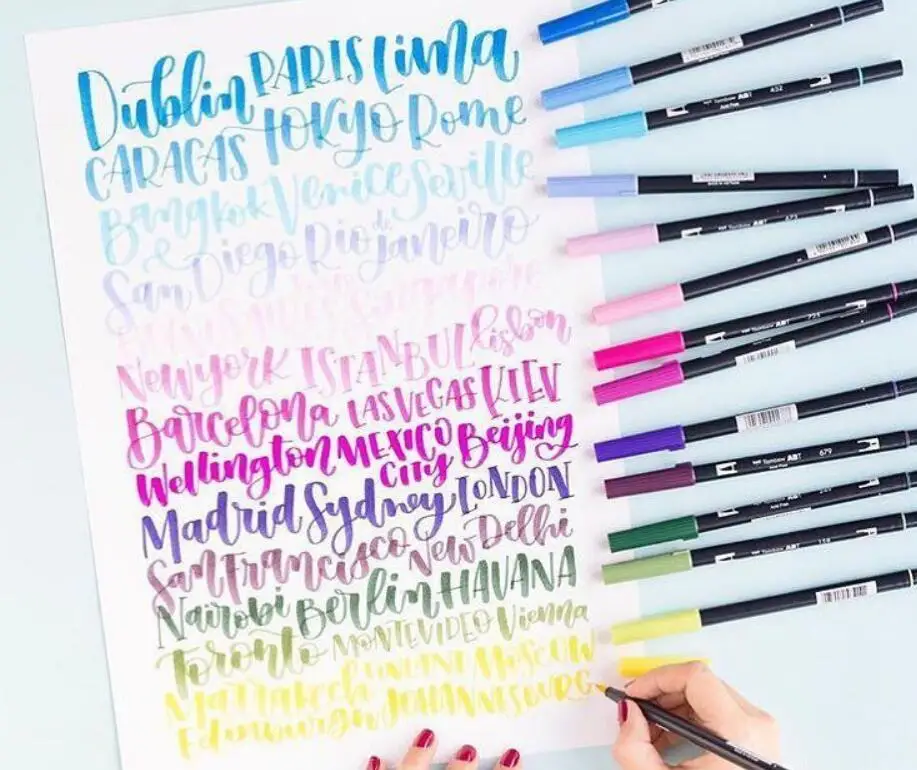 Dublin PARIS Lima
CARACAS TOKYO Rome
Bangkok Venice Seville
San Diego Rio de Janeiro
Buenos Aires Singapore
New york ISTANBUL lisbon
Barcelona LAS VEGAS KIEV
Wellington MEXICO CITY Beijing
Madrid Sydney LONDON
San Francisco New Delhi
Nairobi Berlin HAVANA
Toronto MONTEVIDEO Vienna
Marrakech Moscow
Edimburgh JOHANNESBURG
Tombow ABT 452
Tombow ABT 673
Tombow ABT
Tombow ABT 679
Tombow ABT 158